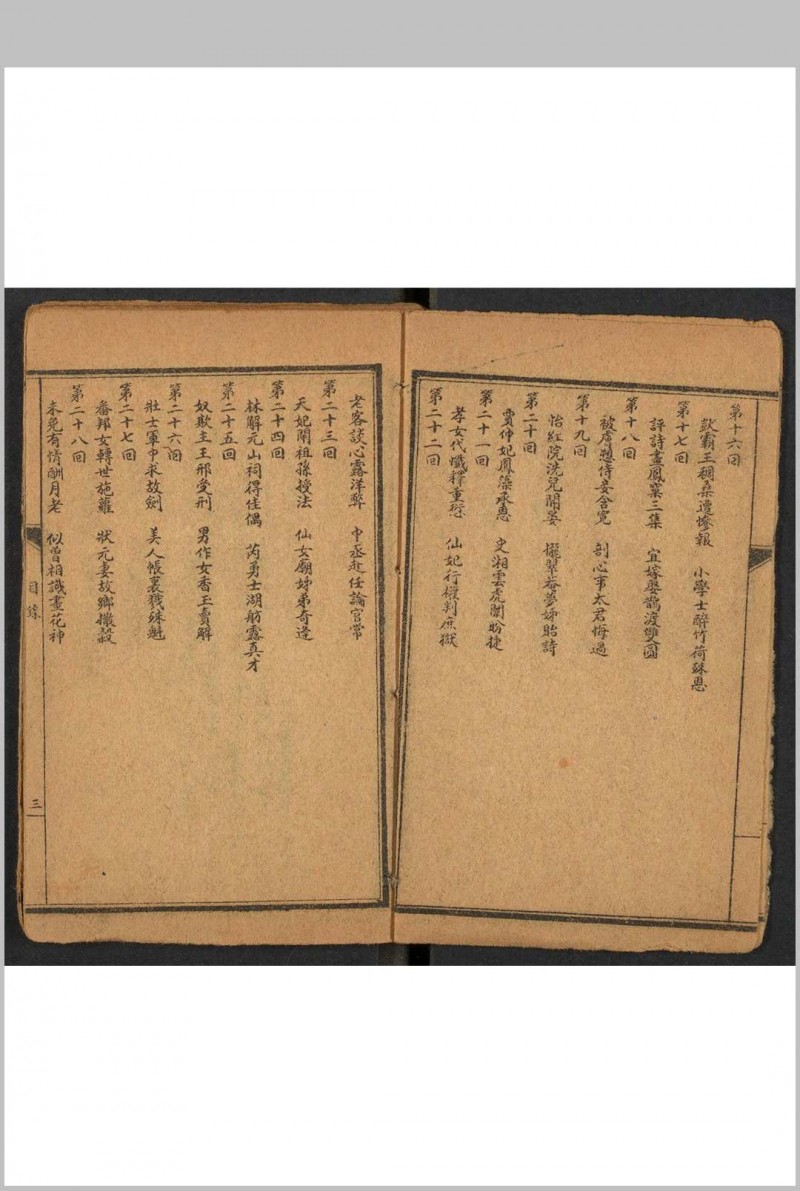 第十六回
獃霸王稠桑遭慘報　小學士醉竹荷殊恩
第十七回
評詩畫鳳寀三集　宜嫁娶鵲渡雙圓
第十八回
被虐愬侍妾含寃　剖心事太君悔過
第十九回
怡紅院洗兒開宴　櫳翠菴夢姊貽詩
第二十回
賈仲妃鳳藻承恩　史湘雲虎闈盼捷
第二十一回
孝女代懺釋重愆　仙妃行權判庶獄
第二十二回
老客談心露洋弊　中丞赴任論官常
第二十三回
天妃閣祖孫授法　仙女廟姊弟奇逢
第二十四回
林解元山祠得佳偶　芮勇士湖舫露真才
第二十五回
奴欺主王邢受刑　男作女香玉賣解
第二十六回
壯士軍中求故劍　美人帳裏獲殊魁
第二十七回
番邦女轉世施蘿　狀元妻故鄉撒穀
第二十八回
未免有情酬月老　似曾相識畫花神
目錄
三